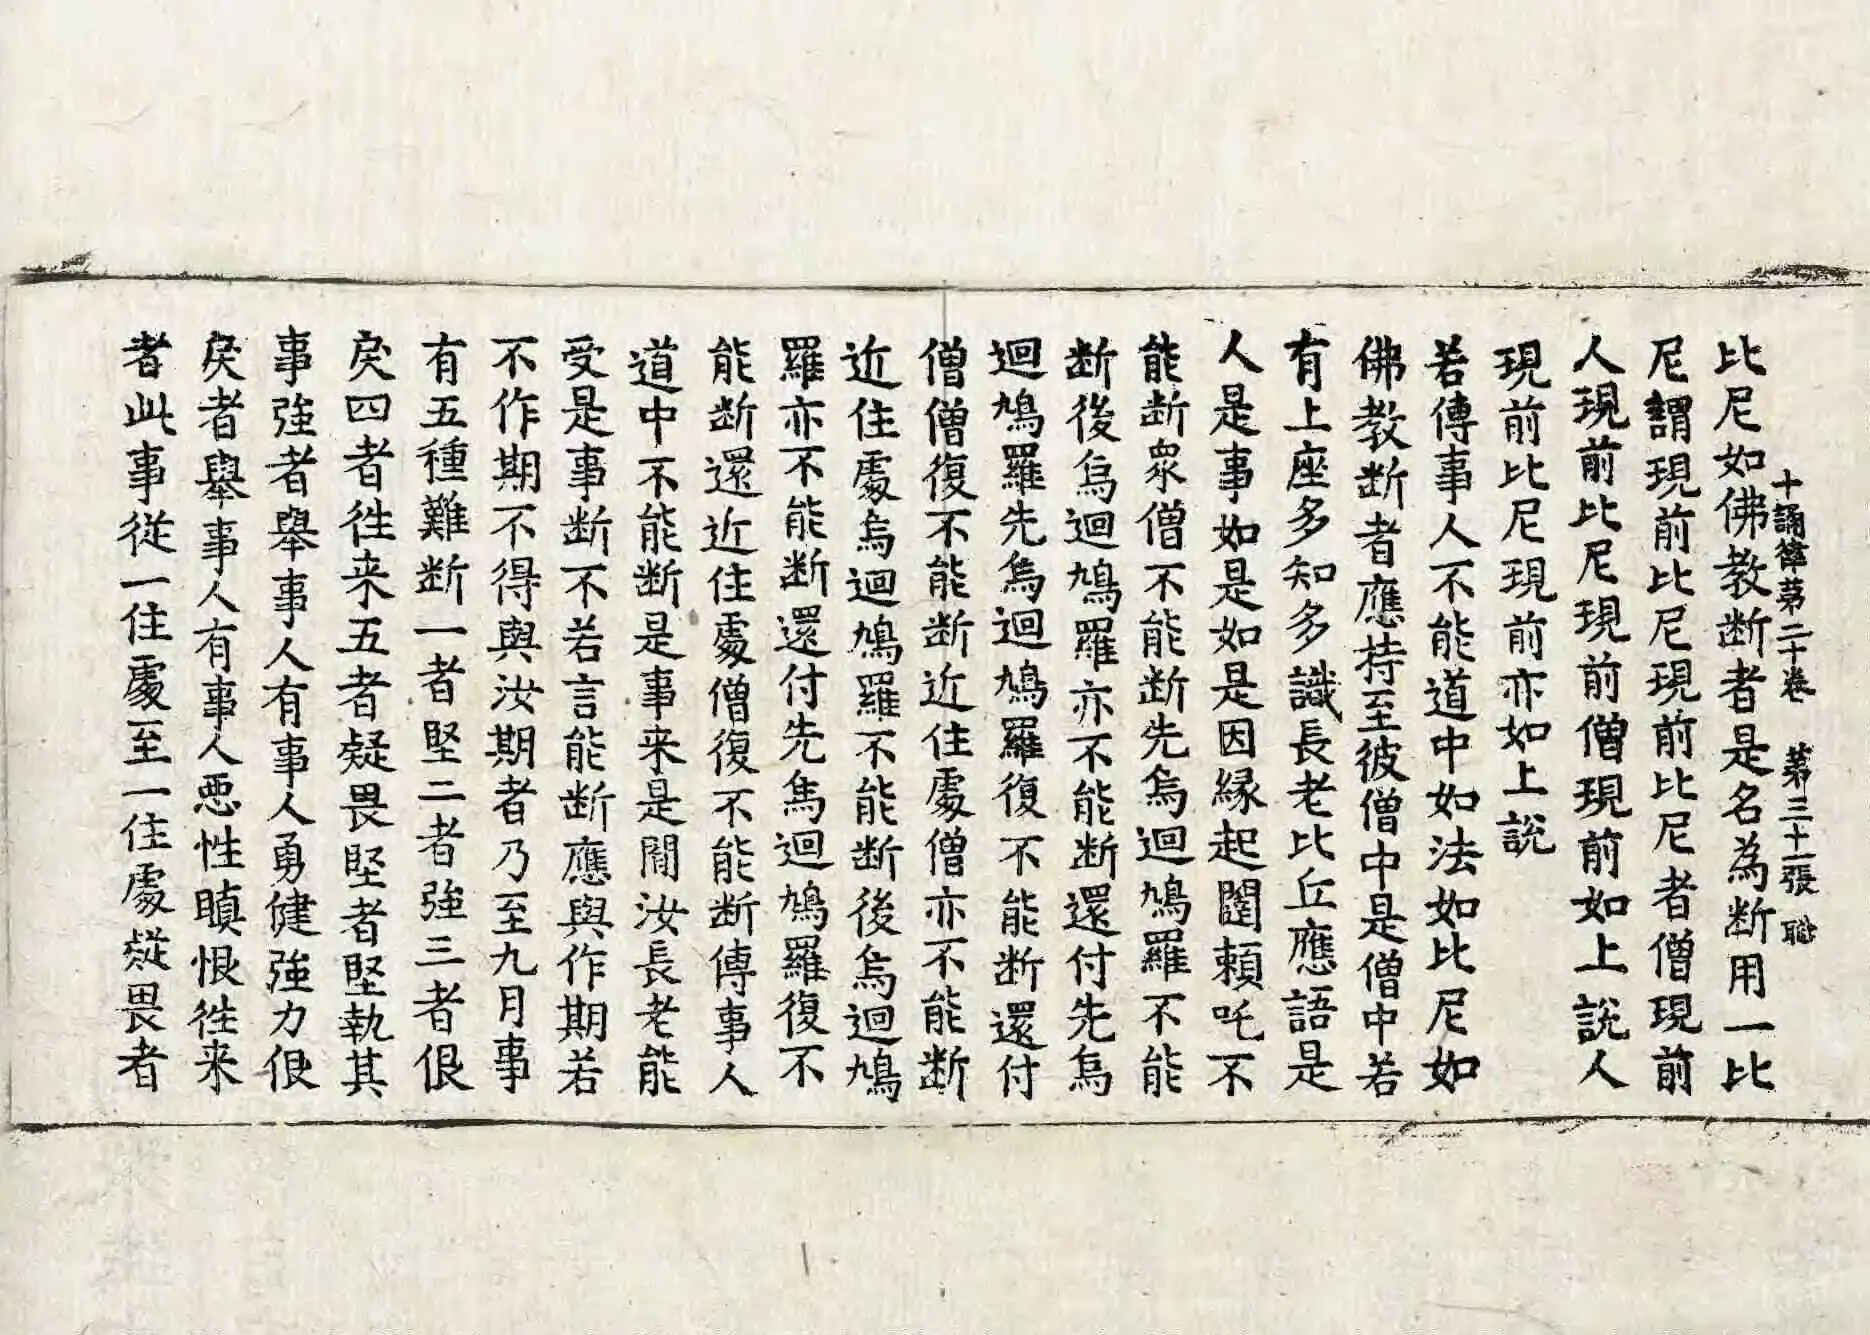 十誦律第二十卷 第三十二張
比尼如佛教断者是名為断用一比
尼謂現前比尼現前比尼者僧現前
人現前比尼現前僧現前如上說人
現前比尼現前亦如上說
若傳事人不能道中如法如比尼如
佛教断者應持至彼僧中是僧中若
有上座多知多識長老比丘應語是
人是事如是如是因縁起闥頼吒不
能断衆僧不能断先烏迴鳩羅不能
断後烏迴鳩羅亦不能断還付先烏
迴鳩羅先烏迴鳩羅復不能断還付
僧僧復不能断近住處僧亦不能断
近住處烏迴鳩羅不能断後烏迴鳩
羅亦不能断還付先烏迴鳩羅復不
能断還近住處僧復不能断傳事人
道中不能断是事来是間汝長老能
受是事断不若言能断應與作期若
不作期不得與汝期者乃至九月事
有五種難断一者堅二者強三者佷
戾四者徃来五者疑畏堅者堅執其
事強者舉事人有事人勇健強力佷
戾者舉事人有事人惡性瞋恨徃来
者此事從一住處至一住處疑畏者